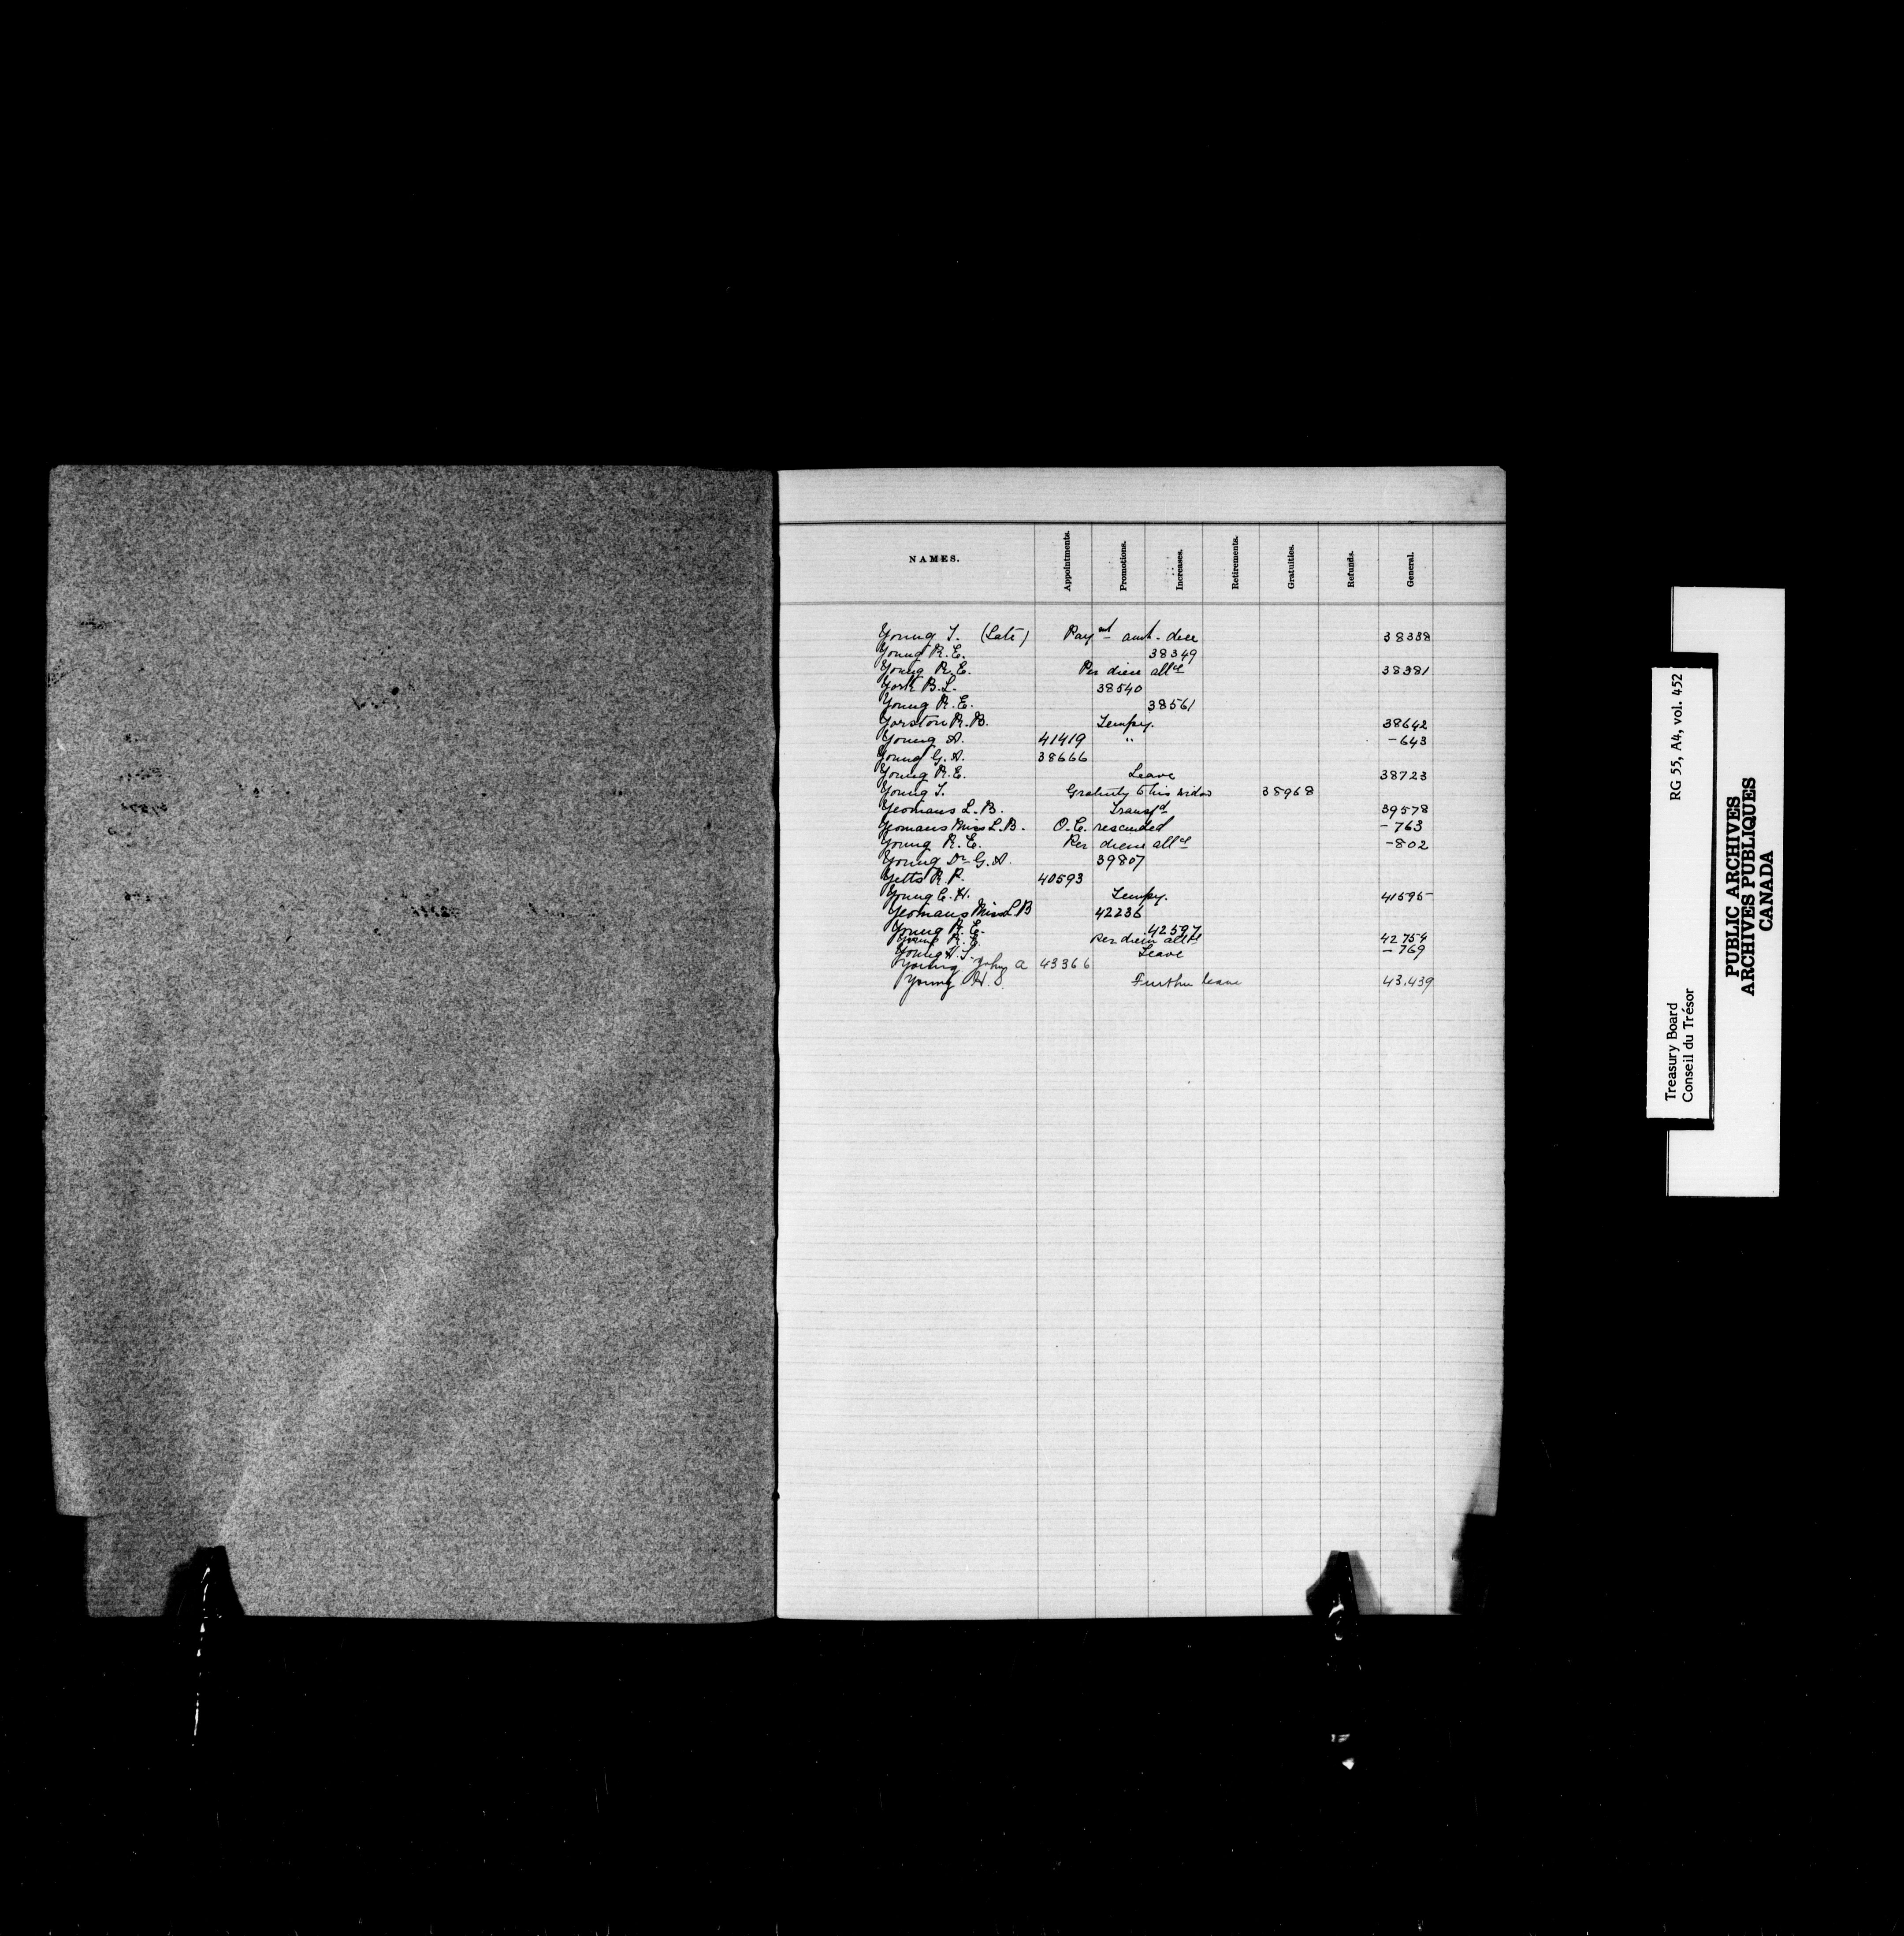 NAMES. Appointments. Promotions. Increases. Retirements. Gratuities. Refunds. General.
Young T. (Late) Paymt amt. due 38338
Young R.E. 38349
Young R.E. Per diem allce 38381
York B.L. 38540
Young R.E. 38561
Yorston R.B. Tempy. 38642
Young A. 41419 " -643
Young G.A. 38666
Young R.E. Leave 38723
Young T. Gratuity to his widow 38968
Yeomans L.B. Transfd 39578
Yeomans Miss L.B. O.C. rescinded -763
Young R.E. Per diem allce -802
Young Dr G.A. 39807
Yetts R.P. 40593
Young C.H. Tempy. 41595
Yeomans Miss L.B 42236
Young R.E. 42597
Young R.E. Per diem allce 42754
Young H.S. Leave -769
Young John A 43366
Young H.S. Further leave 43.439
Treasury Board RG 55, A4, vol. 452
Conseil du Trésor
PUBLIC ARCHIVES
ARCHIVES PUBLIQUES
CANADA